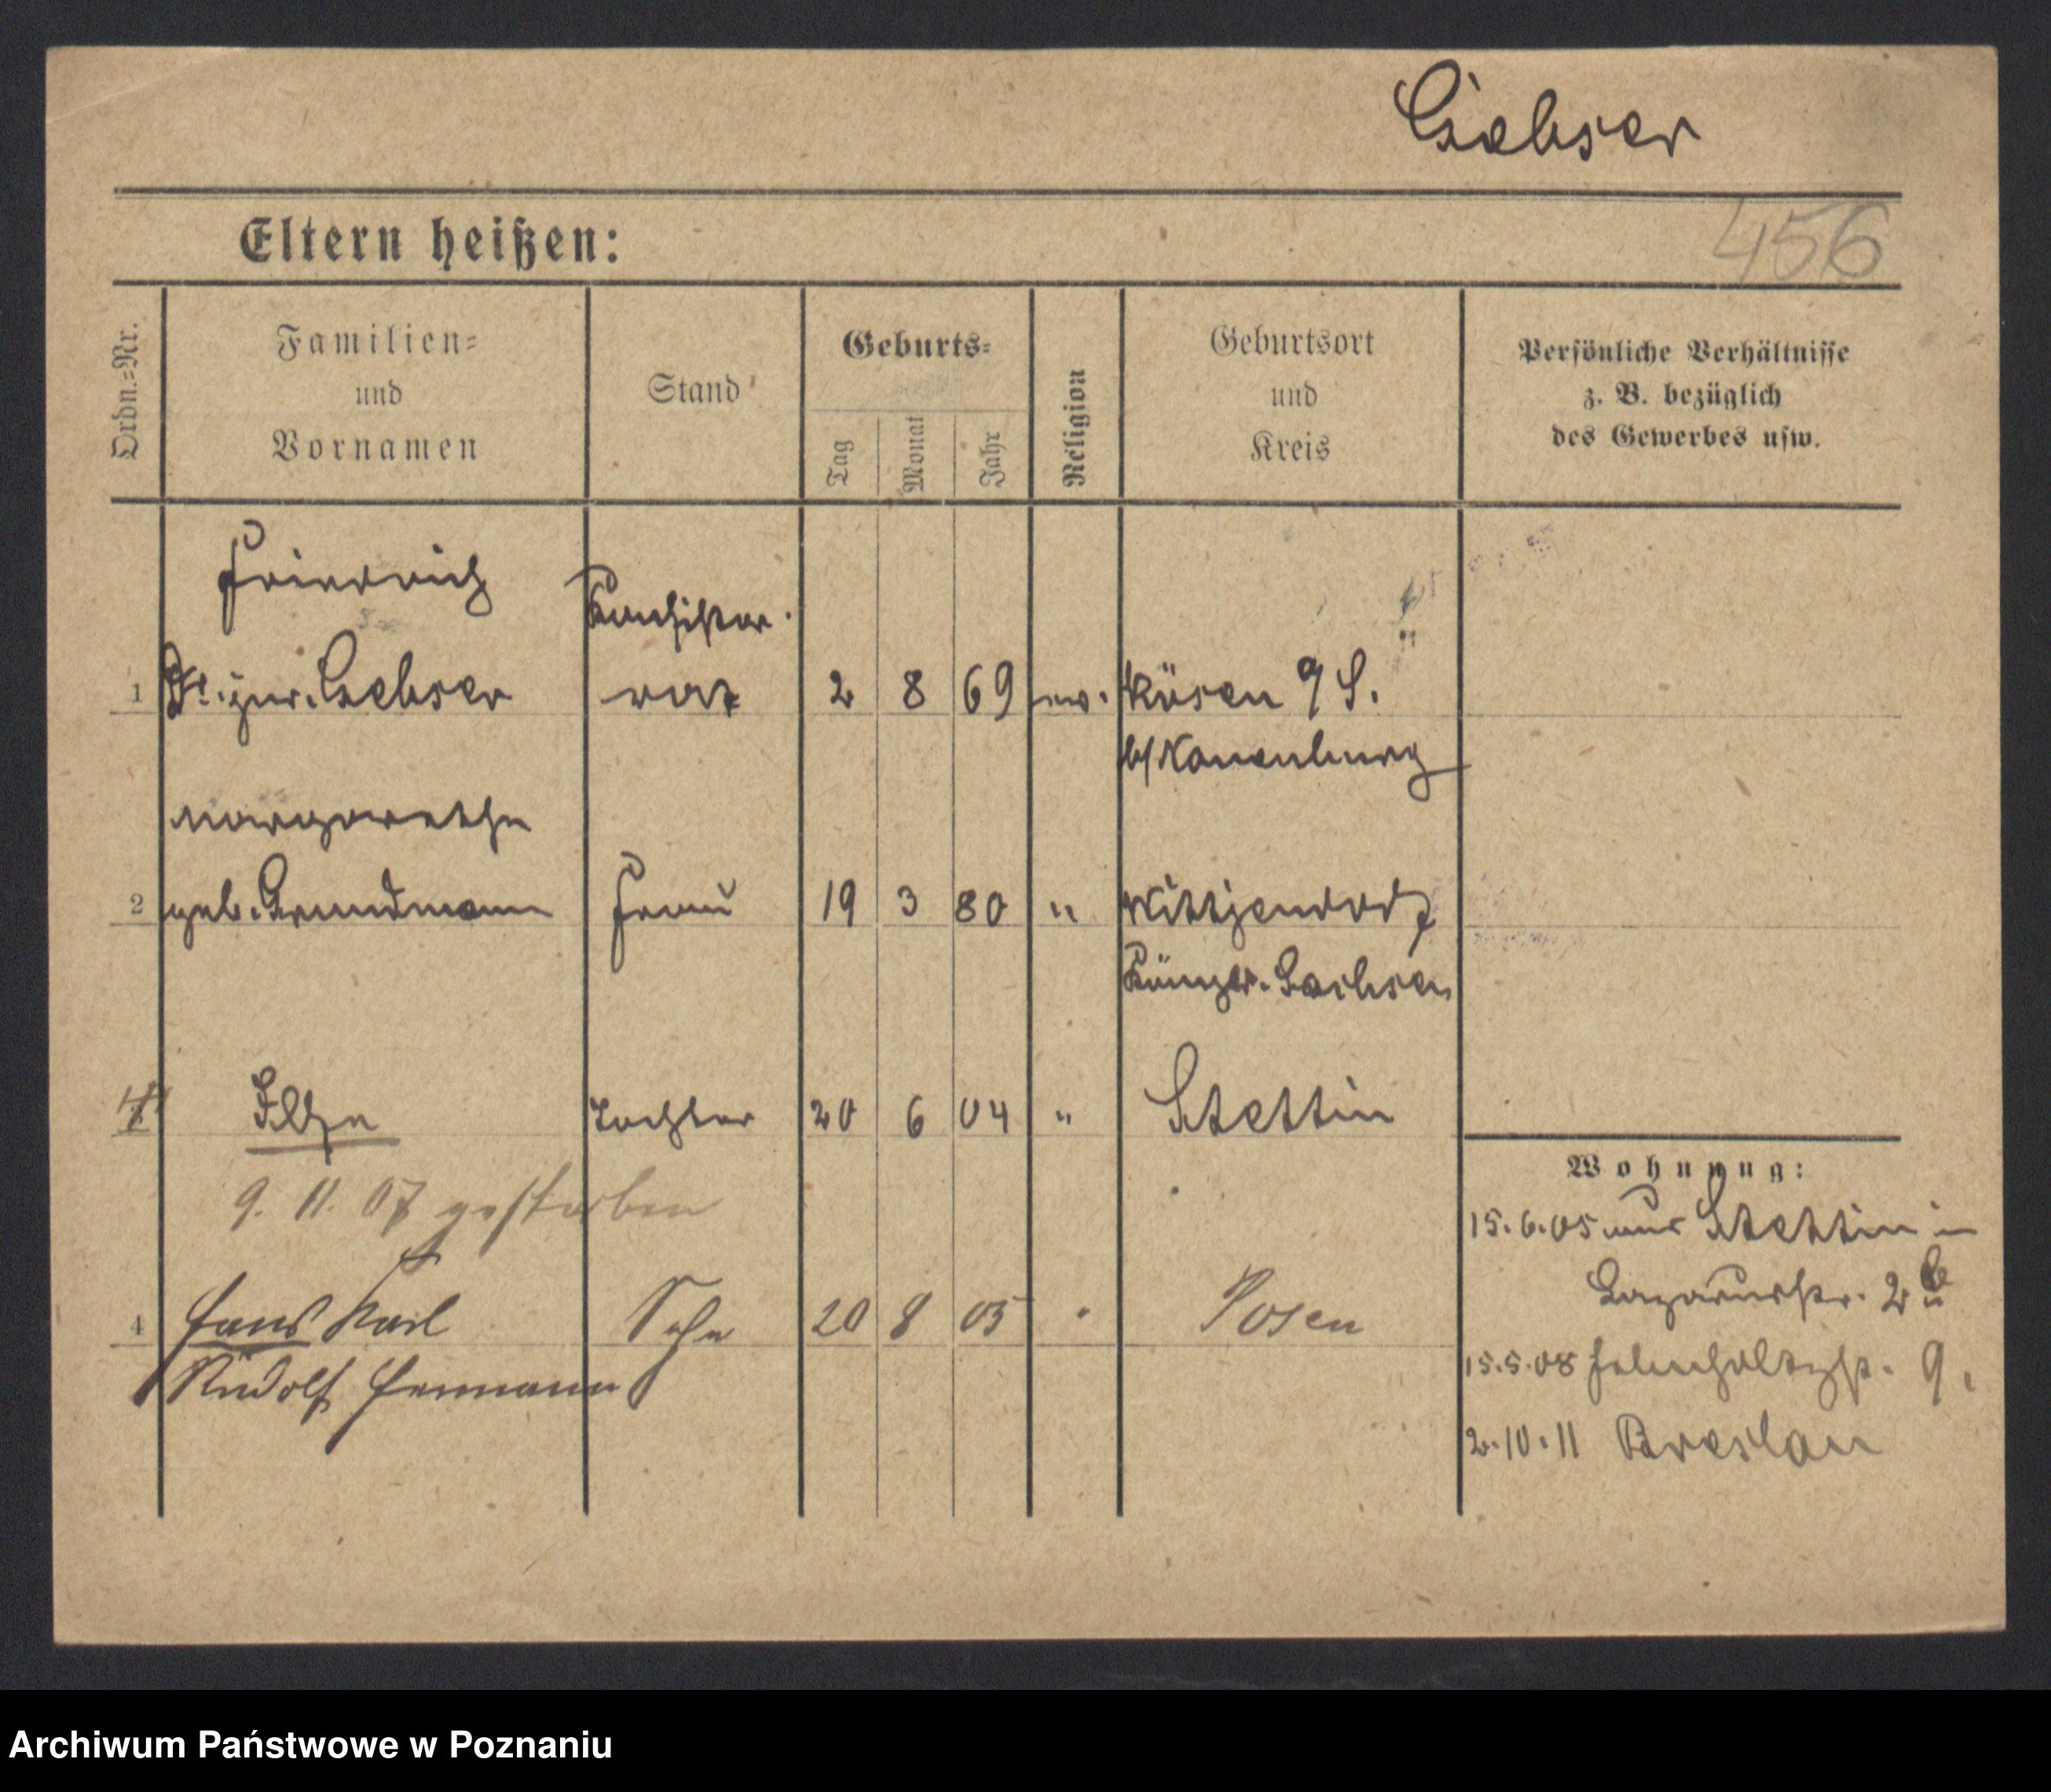 Gebser
Eltern heißen:
456
Ordn.=Nr.
Familien=
und
Vornamen
Stand
Geburts=
Tag
Monat
Jahr
Religion
Geburtsort
und
Kreis
Persönliche Verhältnisse
z. B. bezüglich
des Gewerbes usw.
Friedrich
Konsistor.
1 Dr. jur. Gebser rat 2 8 69 ev. Kösen a/S.
b/Naumburg
Margarethe
2 geb. Grundmann Frau 19 3 80 " Wittgendorf
Königr. Sachsen
Ilse Tochter 20 6 04 " Stettin
9. 11. 07 gestorben
4 Hans Karl Sohn 20 8 05 " Posen
Rudolf Hermann
Wohnung:
15.6.05 aus Stettin in
Lazarusstr. 2
15.5.08 Helmholtzstr. 9.
2.10.11 Breslau
Archiwum Państwowe w Poznaniu